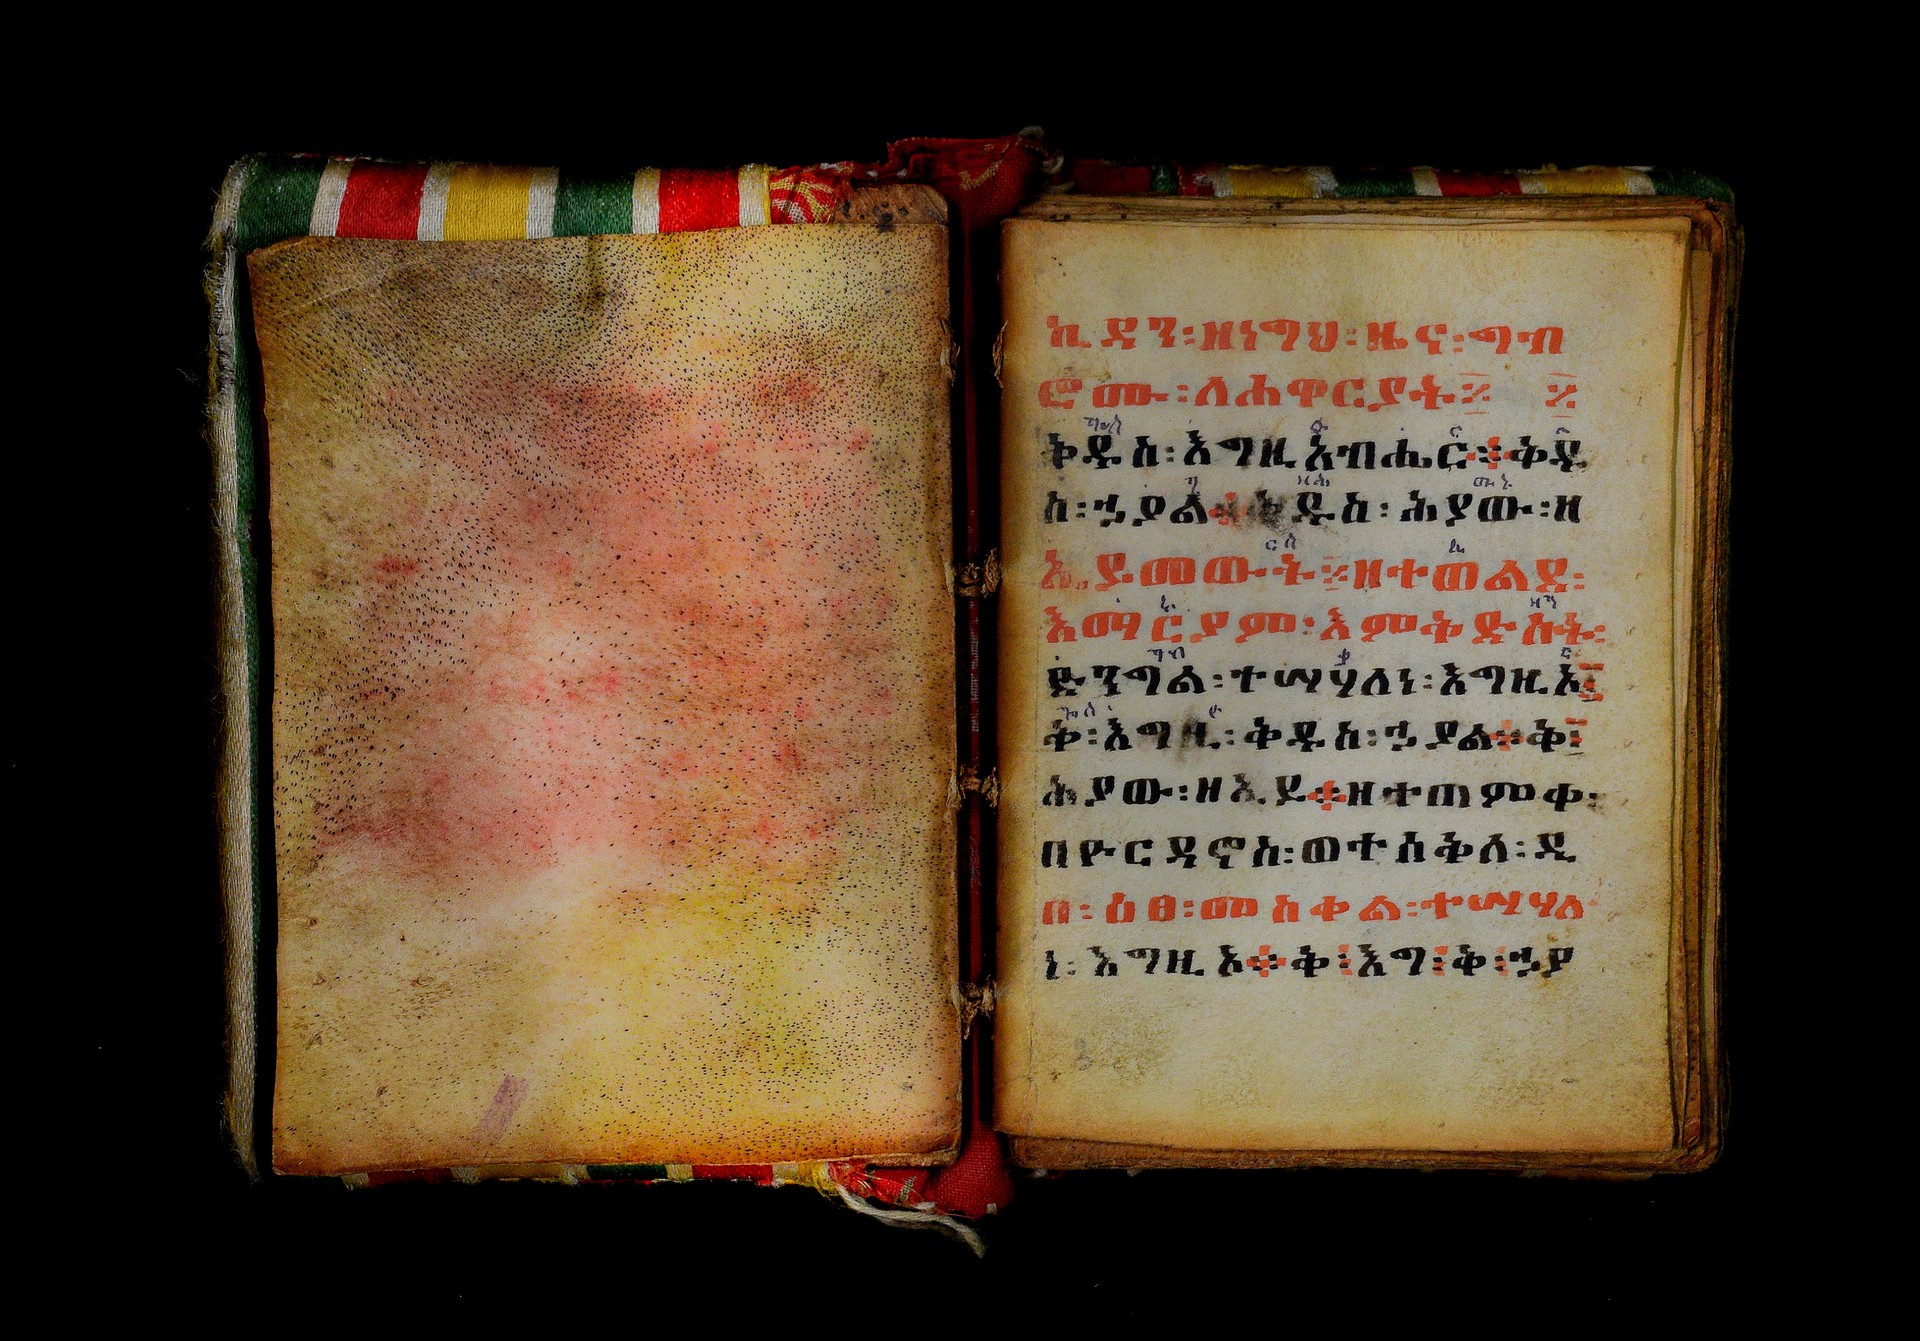 ኪዳን፡ዘነግህ፡ዜና፡ግብ
ሮሙ፡ለሐዋርያት፨ ፨
ቅዱስ፡እግዚአብሔር፨ቅዱ
ስ፡ኃያል፨ቅዱስ፡ሕያው፡ዘ
ኢይመውት፨ዘተወልደ፡
እማርያም፡እምቅድስት፡
ድንግል፡ተሣሃለነ፡እግዚኦ፤
ቅ፡እግዚ፡ቅዱስ፡ኃያል፨ቅ፤
ሕያው፡ዘኢይ፨ዘተጠምቀ፡
በዮርዳኖስ፡ወተሰቅለ፡ዲ
በ፡ዕፀ፡መስቀል፡ተሣሃለ
ነ፡እግዚኦ፨ቅ፤እግ፤ቅ፤ኃያ